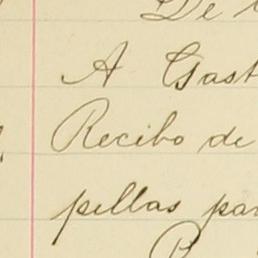 De
A Gast
Recibo de
pillas par